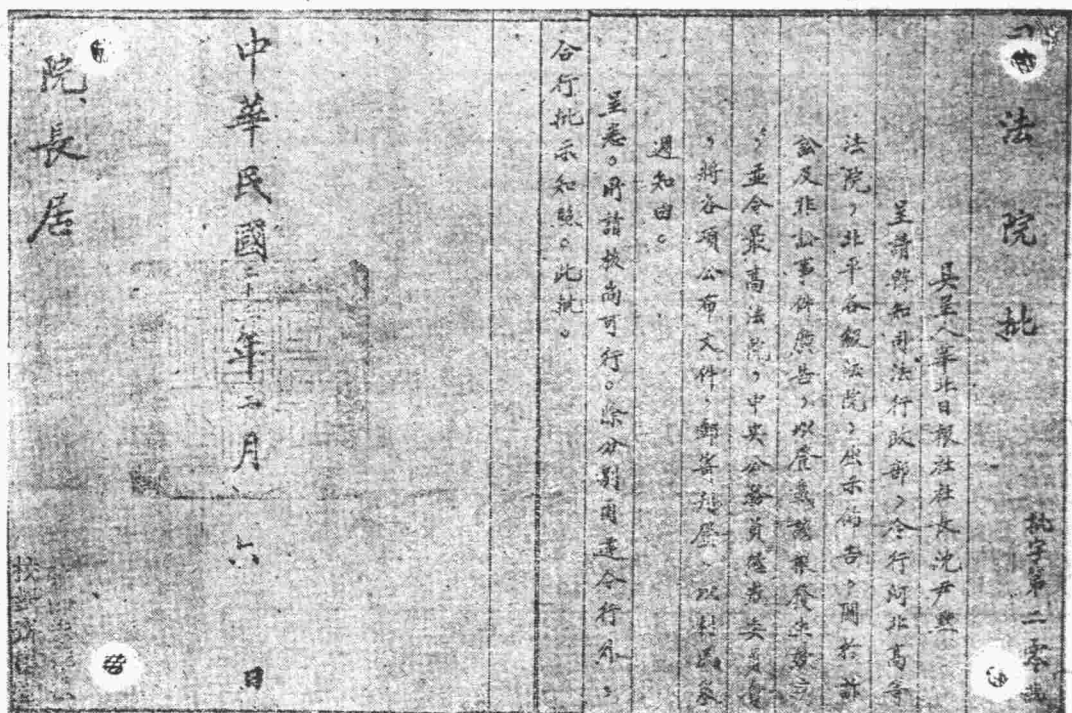 司法院批
批字第二零
具呈人華北日報社社長沈尹默
呈請轉知司法行政部,令行河北高等
法院,北平各級法院,出示佈告,關於訴
訟及非訟事件廣告,以登載該報發生效力
,並令最高法院,中央公務員懲戒委員會
,將各項公布文件,郵寄刊登,以利民眾
週知由。
呈悉。所請核尚可行。除分別函達令行外,
合行批示知照。此批。
中華民國二十二年二月六日
院長居